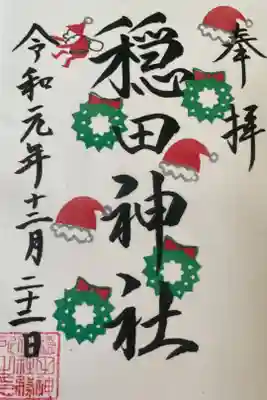 奉拝
穏田神社
令和元年十二月二十二日